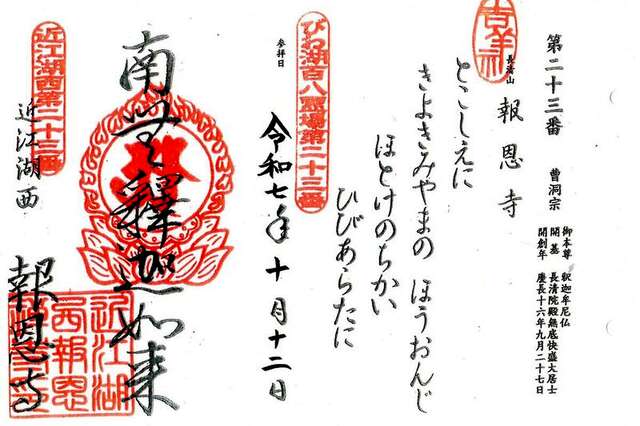 第二十三番 曹洞宗
御本尊 釈迦牟尼仏
開基 長清院殿無底快盛大居士
開創年 慶長十六年九月二十七日
長清山 報恩寺
吉祥
とこしえに
きよきみやまの ほうおんじ
ほとけのちかい
ひびあらたに
びわ湖百八霊場第二十三番
参拝日
令和七年 十月十二日
南無釋迦如来
近江湖西第二十三番
近江湖西
報恩寺
近江湖
西報恩